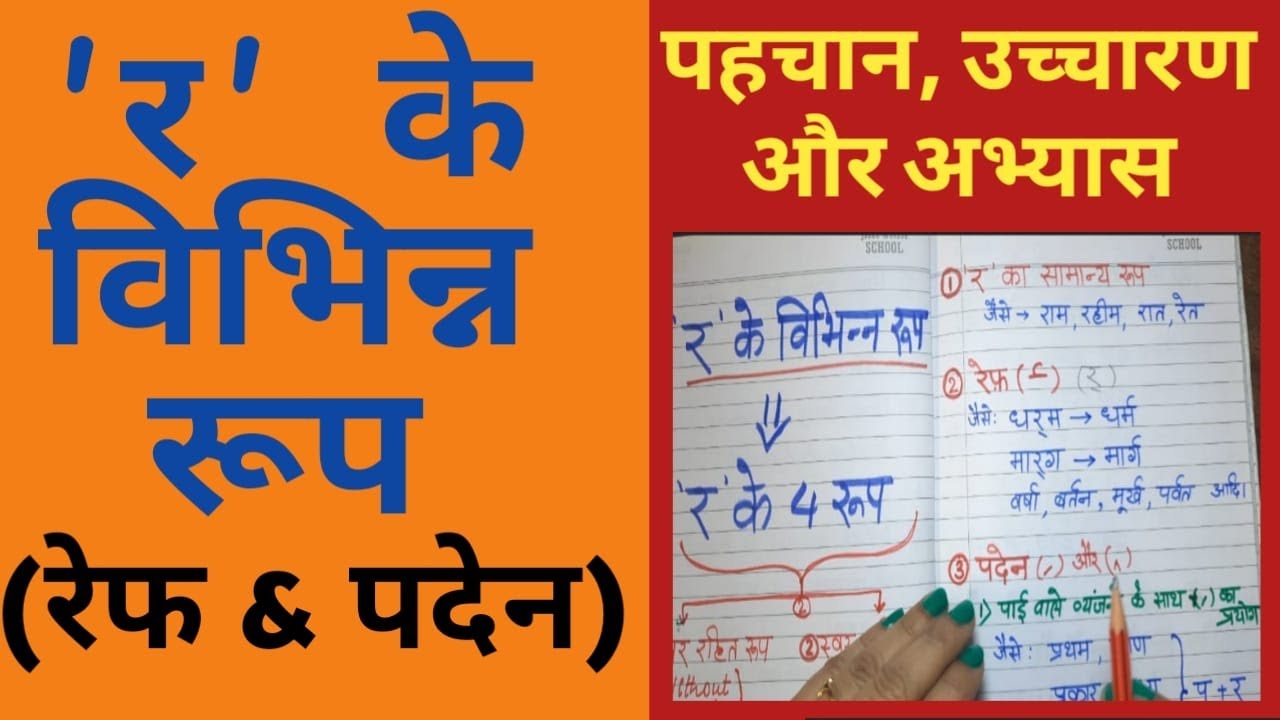 'र' के
विभिन्न
रूप
(रेफ & पदेन)
पहचान, उच्चारण
और अभ्यास
SCHOOL
'र' के विभिन्न रूप
'र' के 4 रूप
②
रहित रूप ②
SCHOOL
① 'र' का सामान्य रूप
जैसे → राम, रहीम, रात, रेत
② रेफ़ (र्) (र्)
जैसे: धर्‌म → धर्म
मार्‌ग → मार्ग
वर्षा, बर्तन, मूर्ख, पर्वत आदि।
③ पदेन (्र) और (्र)
1) पाई वाले व्यंजन के साथ (्र) का
प्रयोग
जैसे: प्रथम,
प + र